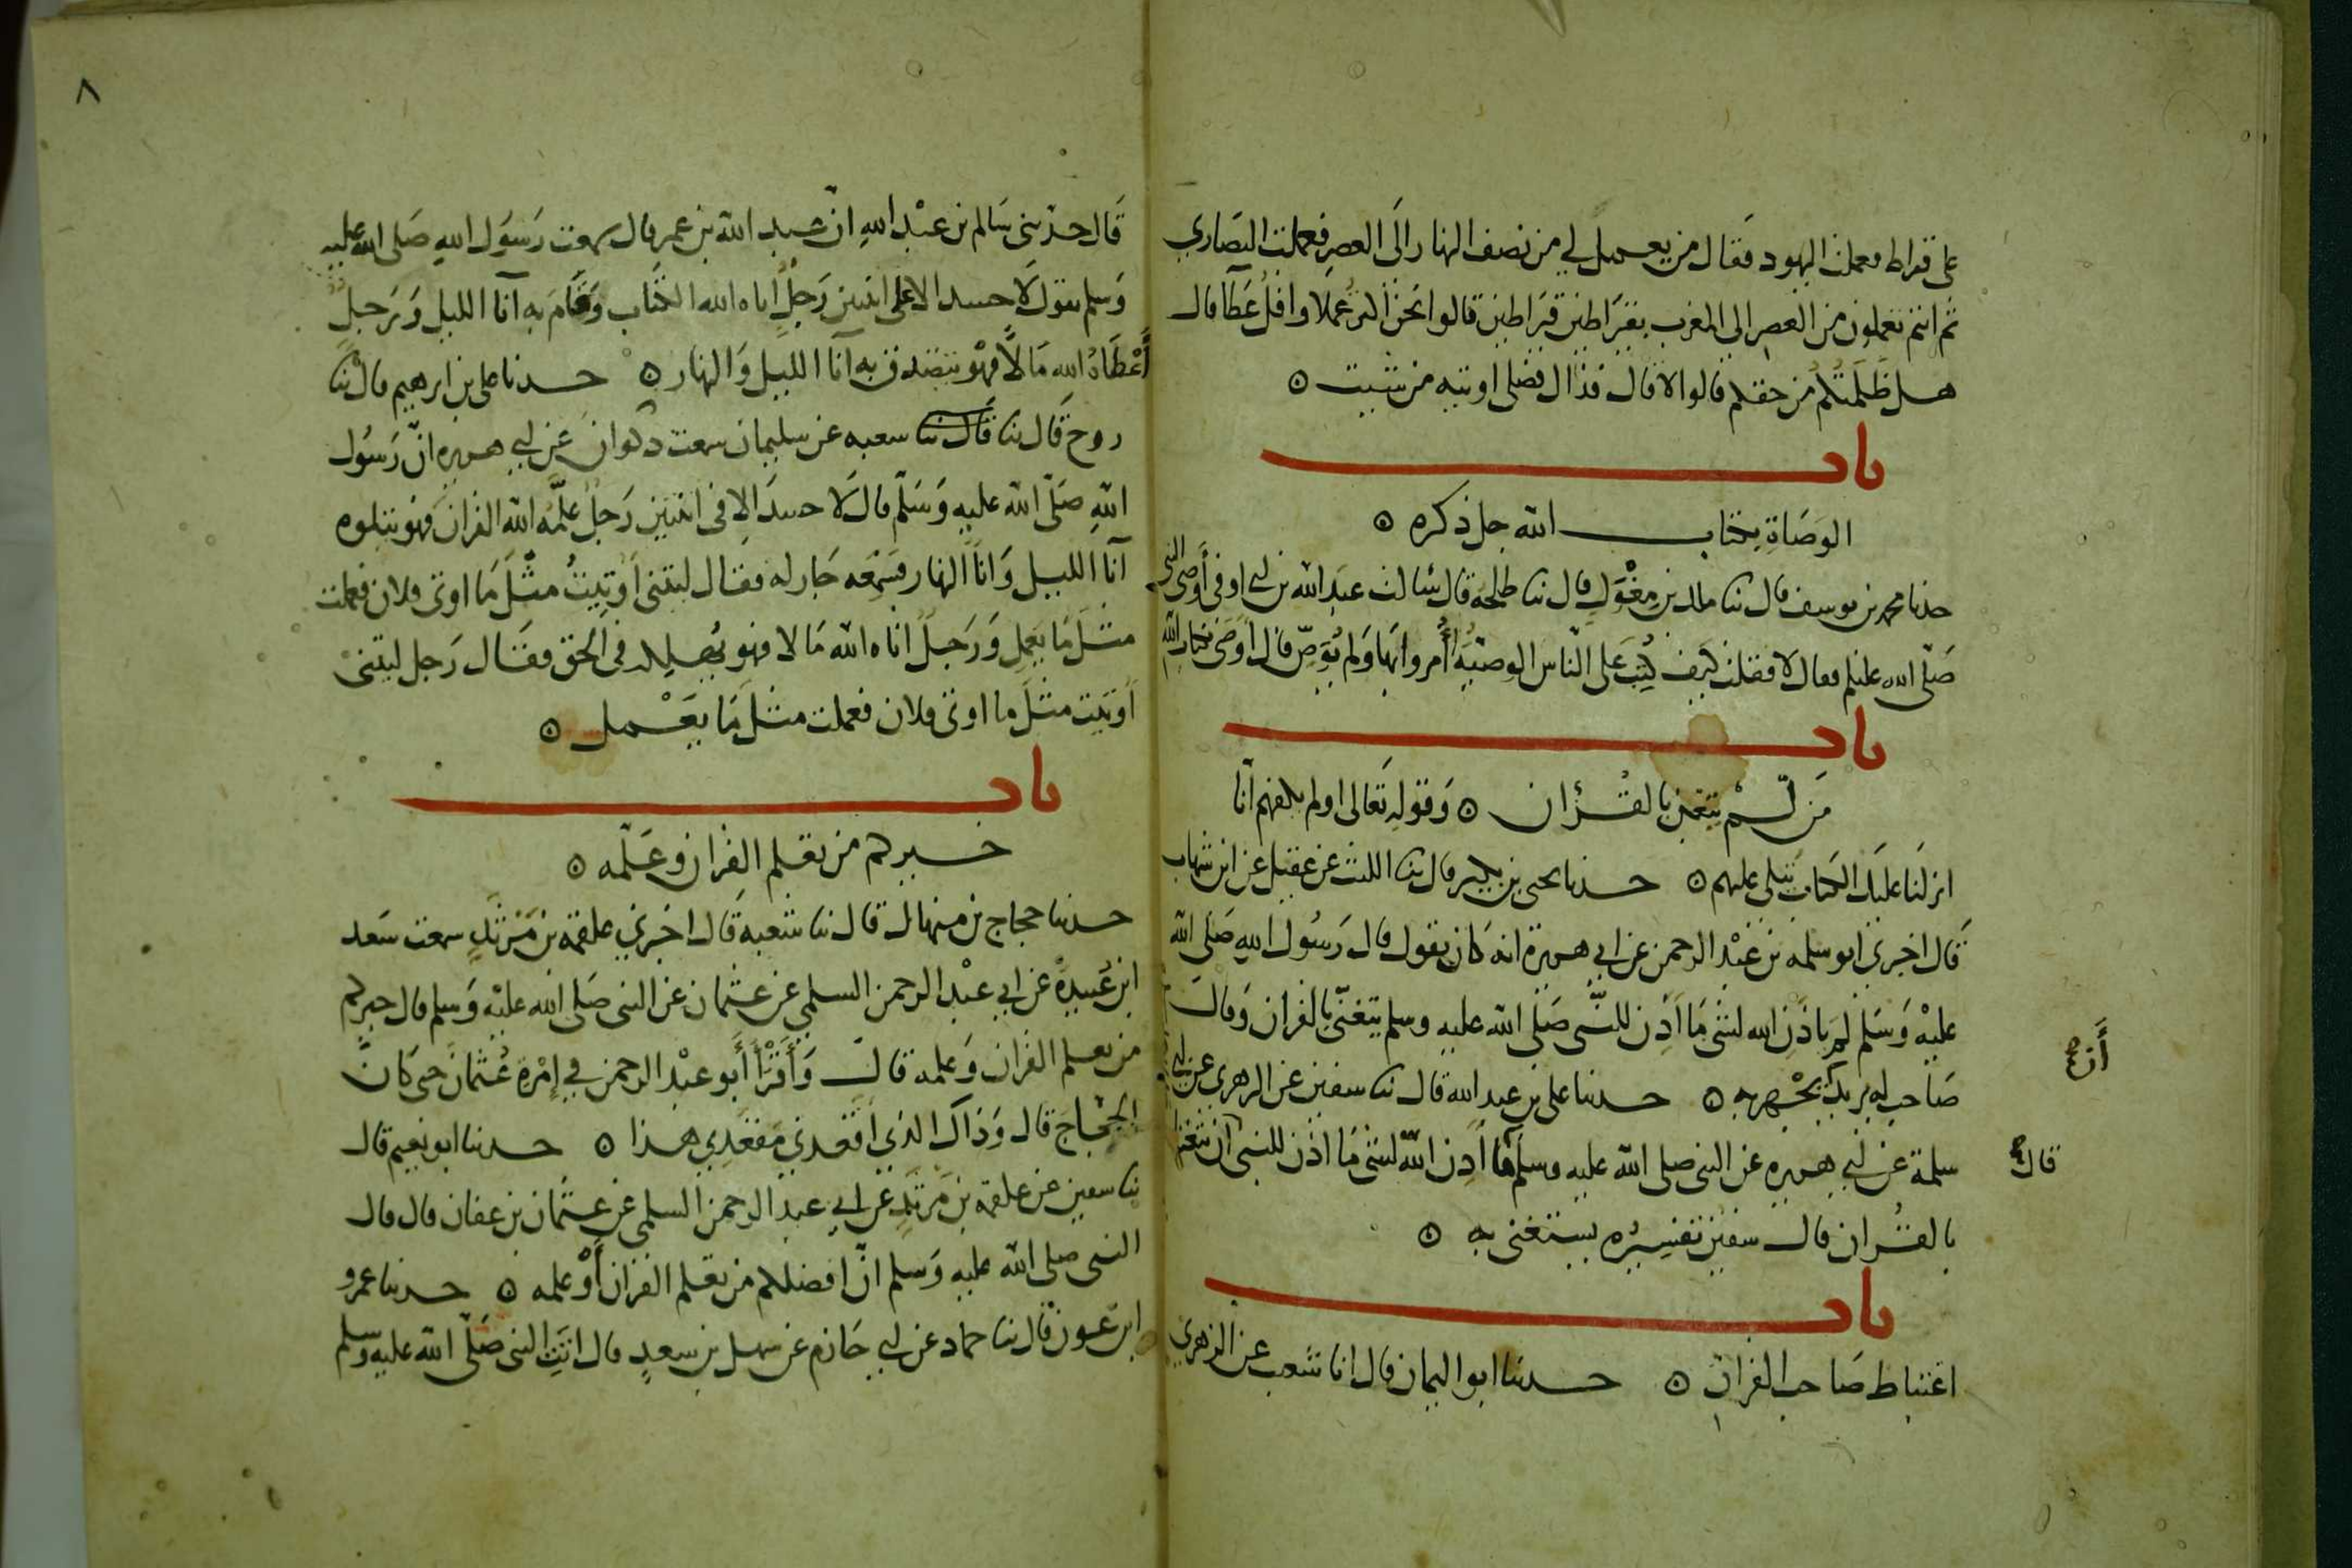 على قيراط فعملت اليهود فقال من يعمل لي من نصف النهار الى العصر فعملت النصاري
ثم انتم تعملون من العصر الى المغرب بقيراطين قيراطين قالوا نحن اكثر عملا واقل عطآ قال
هل ظلمتكم من حقكم قالوا لا قال فذاك فضلى اوتيه من شيت ه
باب
الوصاة بكتاب الله جل ذكره ه
حدثنا محمد بن يوسف قال ثنا ملك بن مغول قال ثنا طلحة قال سالت عبد الله بن ابي اوفى أوصى النبي
صلى الله عليه وسلم فقال لا فقلت كيف كتب على الناس الوصية أمروا بها ولم يوص قال أوصى بكتاب الله
باب
من لم يتغن بالقرآن ه وقوله تعالى اولم يكفهم انا
انزلنا عليك الكتاب يتلى عليهم ه حدثنا يحيى بن بكير قال ثنا الليث عن عقيل عن ابن شهاب
قال اخبرني ابو سلمة بن عبد الرحمن عن ابي هريرة انه كان يقول قال رسول الله صلى الله
عليه وسلم لم ياذن الله لشئ ما أذن للنبي صلى الله عليه وسلم يتغنى بالقران وقال
أن
صاحب له يريد يجهر به ه حدثنا على بن عبد الله قال ثنا سفين عن الزهري عن ابي
سلمة عن ابي هريرة عن النبي صلى الله عليه وسلم ما أذن الله لشئ ما اذن للنبي أن يتغنى
قال
بالقران قال سفين تفسيره يستغنى به ه
باب
اغتباط صاحب القران ه حدثنا ابو اليمان قال انا شعيب عن الزهري
٨
قال حدثني سالم بن عبد الله ان عبد الله بن عمر قال سمعت رسول الله صلى الله عليه
وسلم يقول لا حسد الا على اثنين رجل اتاه الله الكتاب وقام به آنا الليل ورجل
أعطاه الله مالا فهو يتصدق به آنا الليل والنهار ه حدثنا على بن ابرهيم قال ثنا
روح قال ثنا قال ثنا سعبه عن سليمان سمعت ذكوان عن ابي هريره ان رسول
الله صلى الله عليه وسلم قال لا حسد الا في اثنتين رجل علمه الله القران فهو يتلوه
آنا الليل وانآ النهار فسمعه جار له فقال ليتنى أوتيت مثل ما اوتى فلان فعملت
مثل ما يعمل ورجل اتاه الله مالا فهو يهلكه في الحق فقال رجل ليتنى
أوتيت مثل ما اوتى فلان فعملت مثل ما يعمل ه
باب
خيركم من تعلم القران وعلمه ه
حدثنا حجاج بن منهال قال ثنا شعبة قال اخبرني علقمة بن مرثد سمعت سعد
ابن عبيدة عن ابي عبد الرحمن السلمي عن عثمان عن النبي صلى الله عليه وسلم قال خيركم
من تعلم القران وعلمه قال وأقرأ أبو عبد الرحمن في إمرة عثمان حتى كان
الحجاج قال وذاك الذي اقعدني مقعدي هذا ه حدثنا ابو نعيم قال
ثنا سفين عن علقمة بن مرثد عن ابي عبد الرحمن السلمي عن عثمان بن عفان قال قال
النبي صلى الله عليه وسلم ان افضلكم من تعلم القران أو علمه ه حدثنا عمرو
ابن عون قال ثنا حماد عن ابي حازم عن سهل بن سعد قال اتت النبي صلى الله عليه وسلم